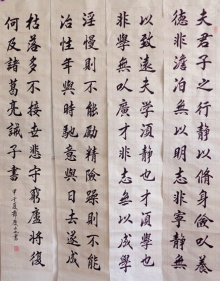 夫君子之行静以脩身儉以養
德非澹泊無以明志非寧静無
以致遠夫學須静也才須學也
非學無以廣才非志無以成學
淫慢則不能勵精險躁則不能
冶性年與時馳意與日去遂成
枯落多不接世悲守窮廬將復
何及諸葛亮誡子書